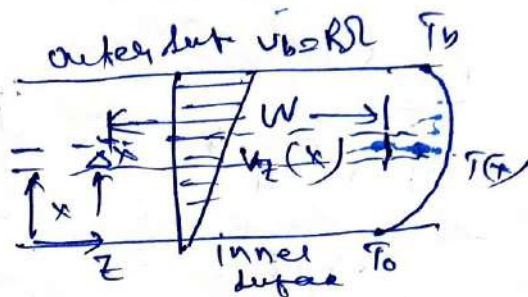 outer surf v_b = RΩ T_b
W
Δx v_z(x)
x T(x)
z inner T_0
surface